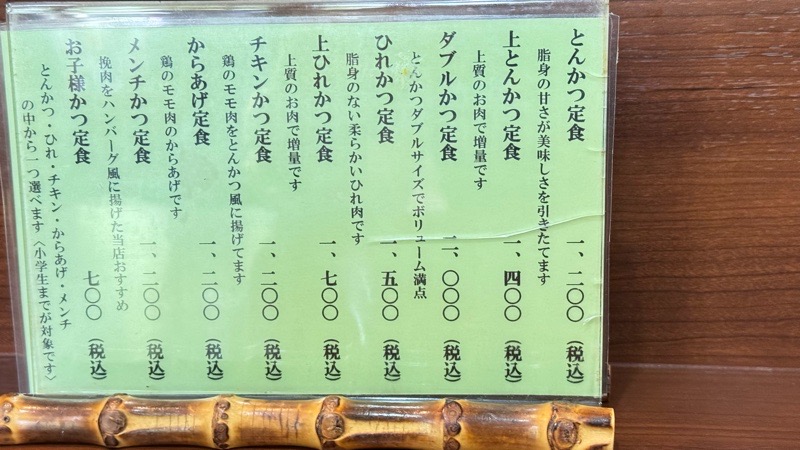 とんかつ定食 一、二〇〇 (税込)
脂身の甘さが美味しさを引きたてます
上とんかつ定食 一、四〇〇 (税込)
上質のお肉で増量です
ダブルかつ定食 二、〇〇〇 (税込)
とんかつダブルサイズでボリューム満点
ひれかつ定食 一、五〇〇 (税込)
脂身のない柔らかいひれ肉です
上ひれかつ定食 一、七〇〇 (税込)
上質のお肉で増量です
チキンかつ定食 一、二〇〇 (税込)
鶏のモモ肉をとんかつ風に揚げてます
からあげ定食 一、二〇〇 (税込)
鶏のモモ肉のからあげです
メンチかつ定食 一、二〇〇 (税込)
挽肉をハンバーグ風に揚げた当店おすすめ
お子様かつ定食 七〇〇 (税込)
とんかつ・ひれ・チキン・からあげ・メンチ
の中から一つ選べます〈小学生までが対象です〉